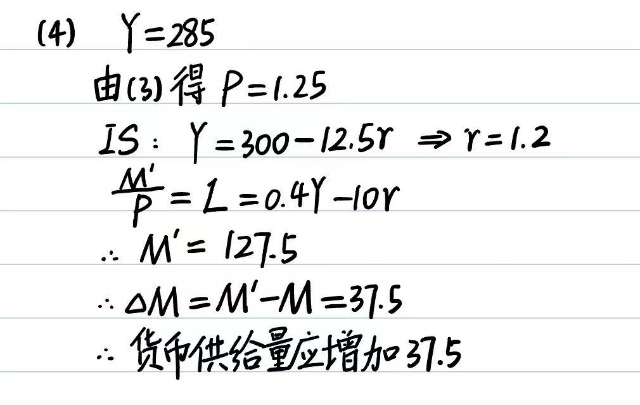 (4) Y=285
由(3)得 P=1.25
IS: Y=300-12.5r ⇒ r=1.2
M'/P = L = 0.4Y-10r
∴ M'= 127.5
∴ ΔM = M'-M = 37.5
∴ 货币供给量应增加37.5